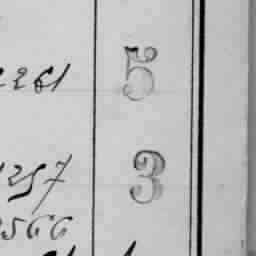 2261 5
1257 3
2566